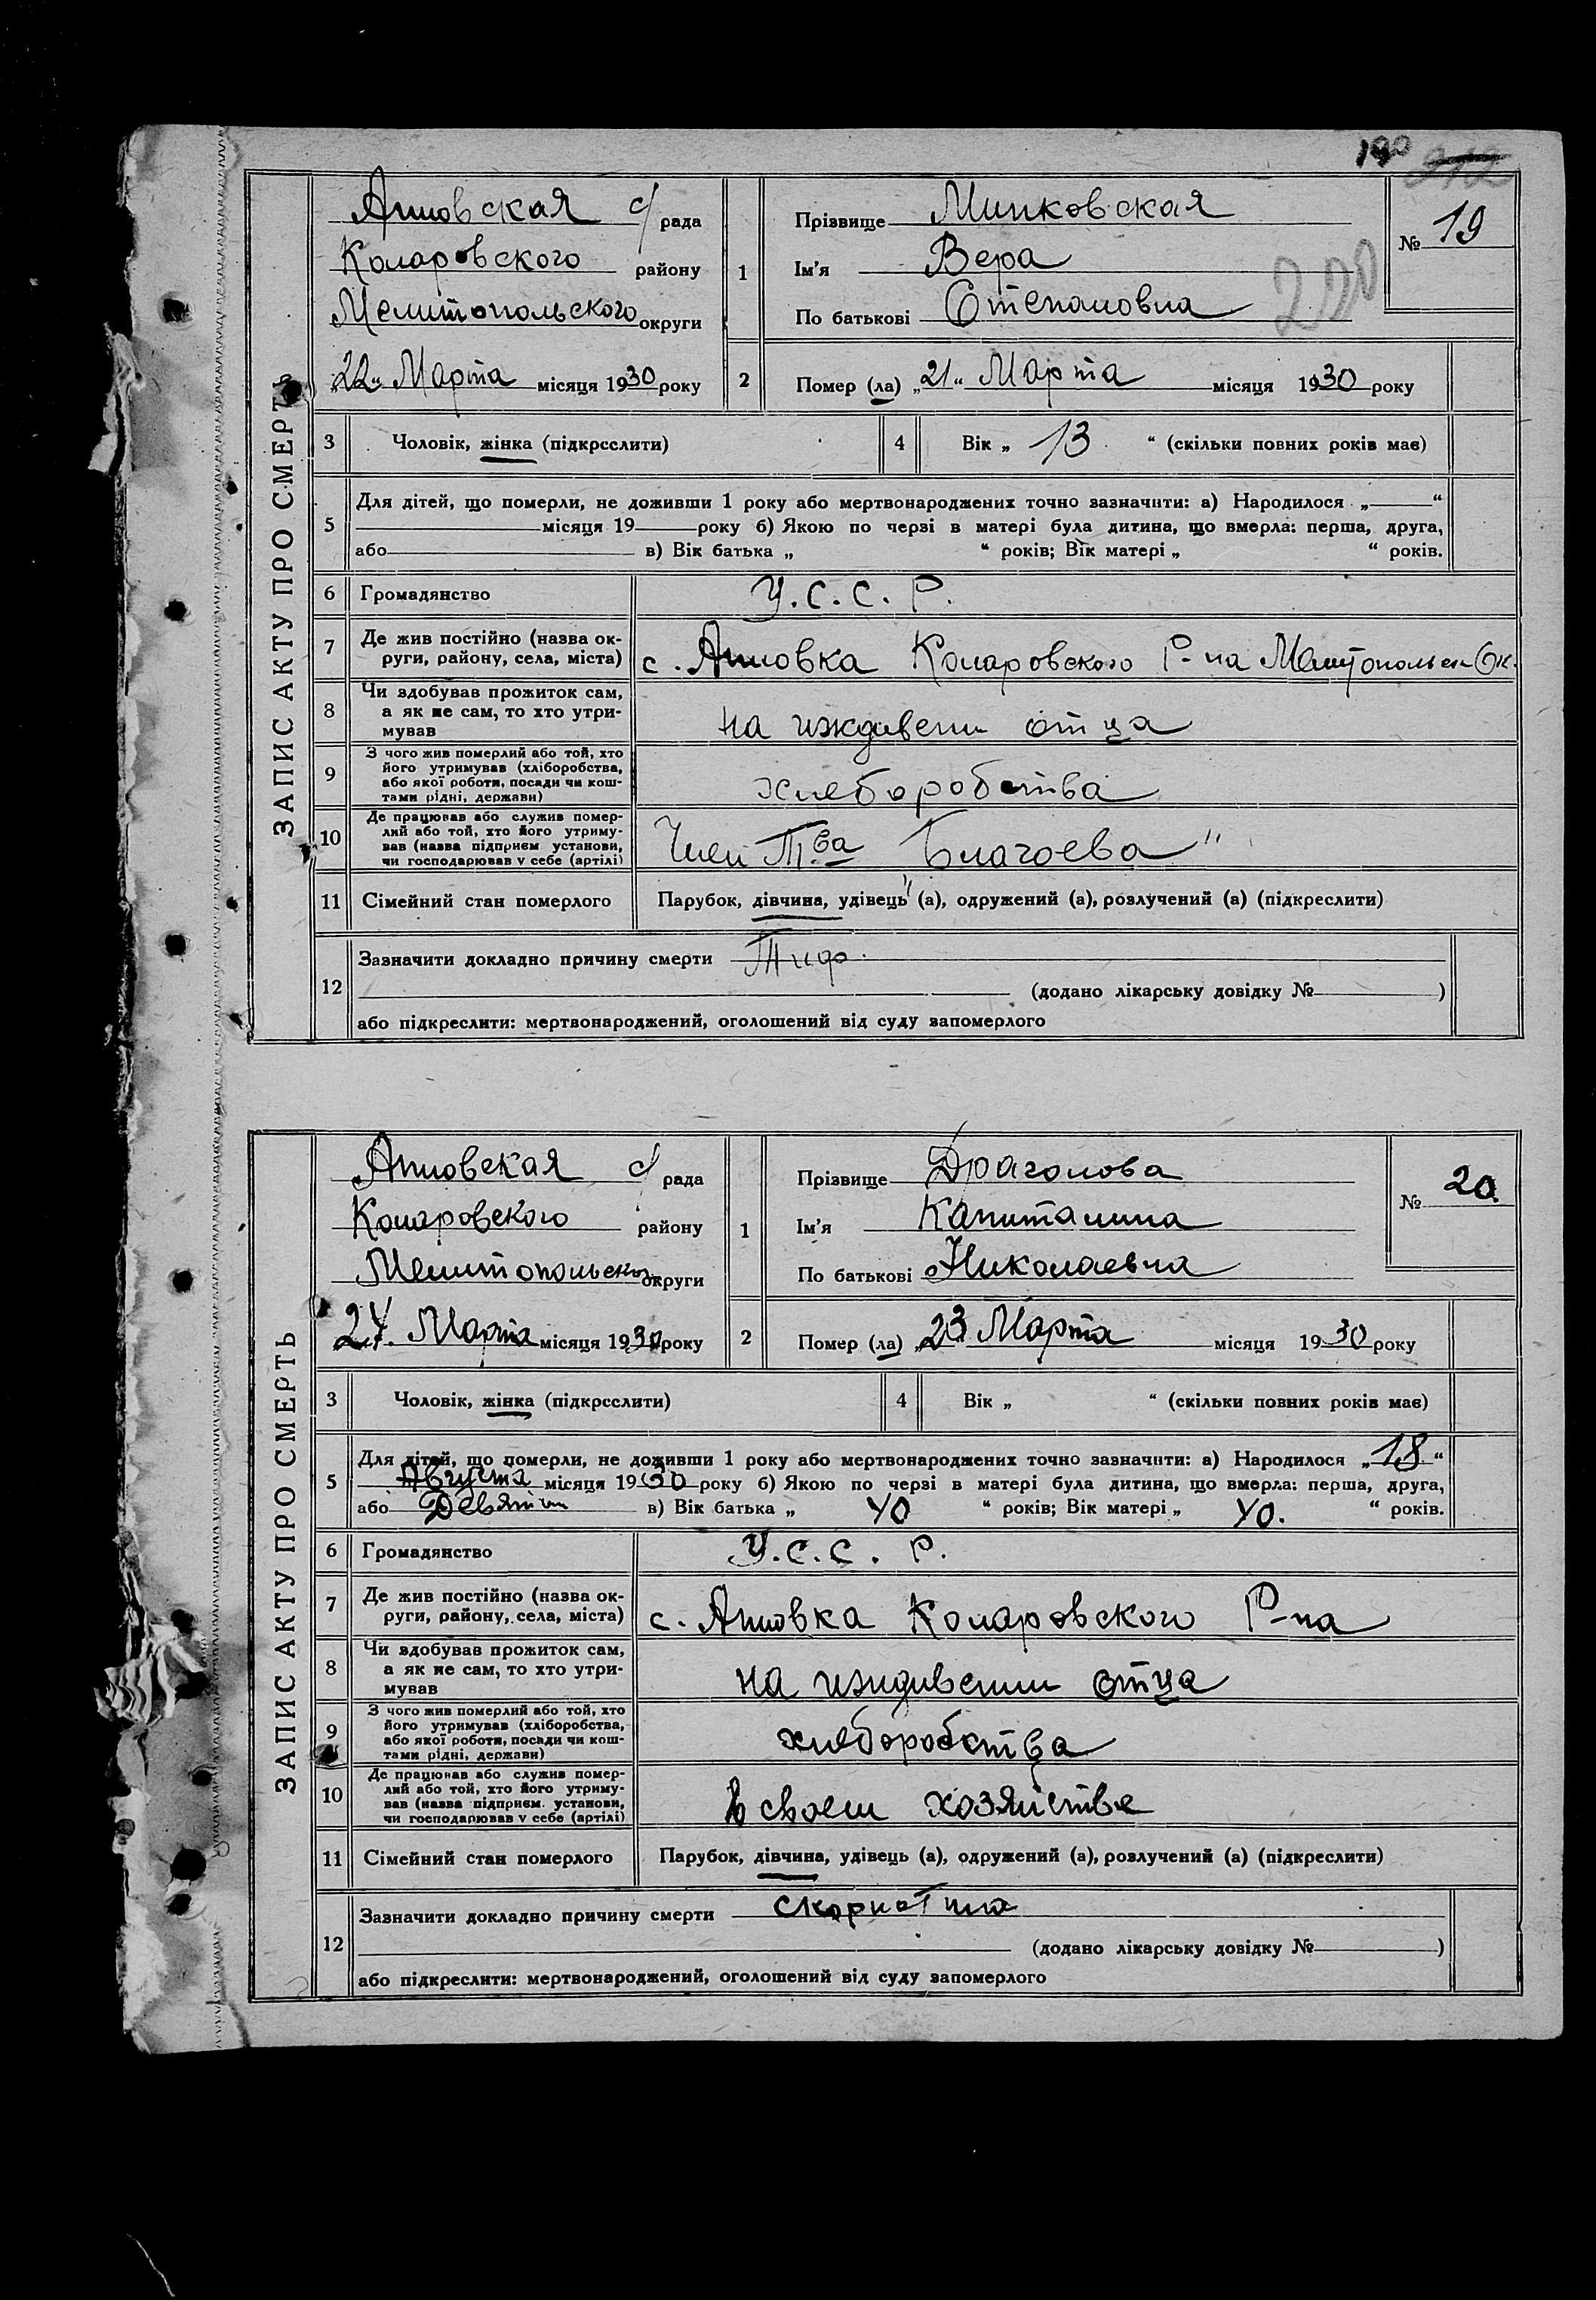 190 212
ЗАПИС АКТУ ПРО СМЕРТЬ
Анновская с/ рада
Коларовского району
Мелитопольского округи
„22“ Марта місяця 1930 року
1
Прізвище Минковская
Ім'я Вера
По батькові Степановна
№ 19
220
2 Помер (ла) „21“ Марта місяця 1930 року
3 Чоловік, жінка (підкреслити)
4 Вік „ 13 “ (скільки повних років має)
5 Для дітей, що померли, не доживши 1 року або мертвонароджених точно зазначити: а) Народилося „ “
місяця 19 року б) Якою по черзі в матері була дитина, що вмерла: перша, друга,
або в) Вік батька „ “ років; Вік матері „ “ років.
6 Громадянство У.С.С.Р.
7 Де жив постійно (назва округи, району, села, міста) с. Анновка Коларовского Р-на Мелитопольск Ок.
8 Чи здобував прожиток сам, а як не сам, то хто утримував на иждивении отца
9 З чого жив померлий або той, хто його утримував (хліборобства, або якої роботи, посади чи коштами рідні, держави) хлеборобства
10 Де працював або служив померлий або той, хто його утримував (назва підприєм. установи, чи господарював у себе (артілі) Член Т-ва „Благоева“
11 Сімейний стан померлого Парубок, дівчина, удівець (а), одружений (а), розлучений (а) (підкреслити)
12 Зазначити докладно причину смерти Тиф.
(додано лікарську довідку № )
або підкреслити: мертвонароджений, оголошений від суду запомерлого
ЗАПИС АКТУ ПРО СМЕРТЬ
Анновская с/ рада
Коларовского району
Мелитопольского округи
24. Марта місяця 1930 року
1
Прізвище Драгонова
Ім'я Капиталина
По батькові Николаевна
№ 20
2 Помер (ла) „23 Марта місяця 1930 року
3 Чоловік, жінка (підкреслити)
4 Вік „ “ (скільки повних років має)
5 Для дітей, що померли, не доживши 1 року або мертвонароджених точно зазначити: а) Народилося „18“
Августа місяця 1930 року б) Якою по черзі в матері була дитина, що вмерла: перша, друга,
або в) Вік батька „ 40 “ років; Вік матері „ 40. “ років.
6 Громадянство У.С.С.Р.
7 Де жив постійно (назва округи, району, села, міста) с. Анновка Коларовского Р-на
8 Чи здобував прожиток сам, а як не сам, то хто утримував на иждивении отца
9 З чого жив померлий або той, хто його утримував (хліборобства, або якої роботи, посади чи коштами рідні, держави) хлеборобства
10 Де працював або служив померлий або той, хто його утримував (назва підприєм. установи, чи господарював у себе (артілі) в своем хозяйстве
11 Сімейний стан померлого Парубок, дівчина, удівець (а), одружений (а), розлучений (а) (підкреслити)
12 Зазначити докладно причину смерти скорлотина
(додано лікарську довідку № )
або підкреслити: мертвонароджений, оголошений від суду запомерлого